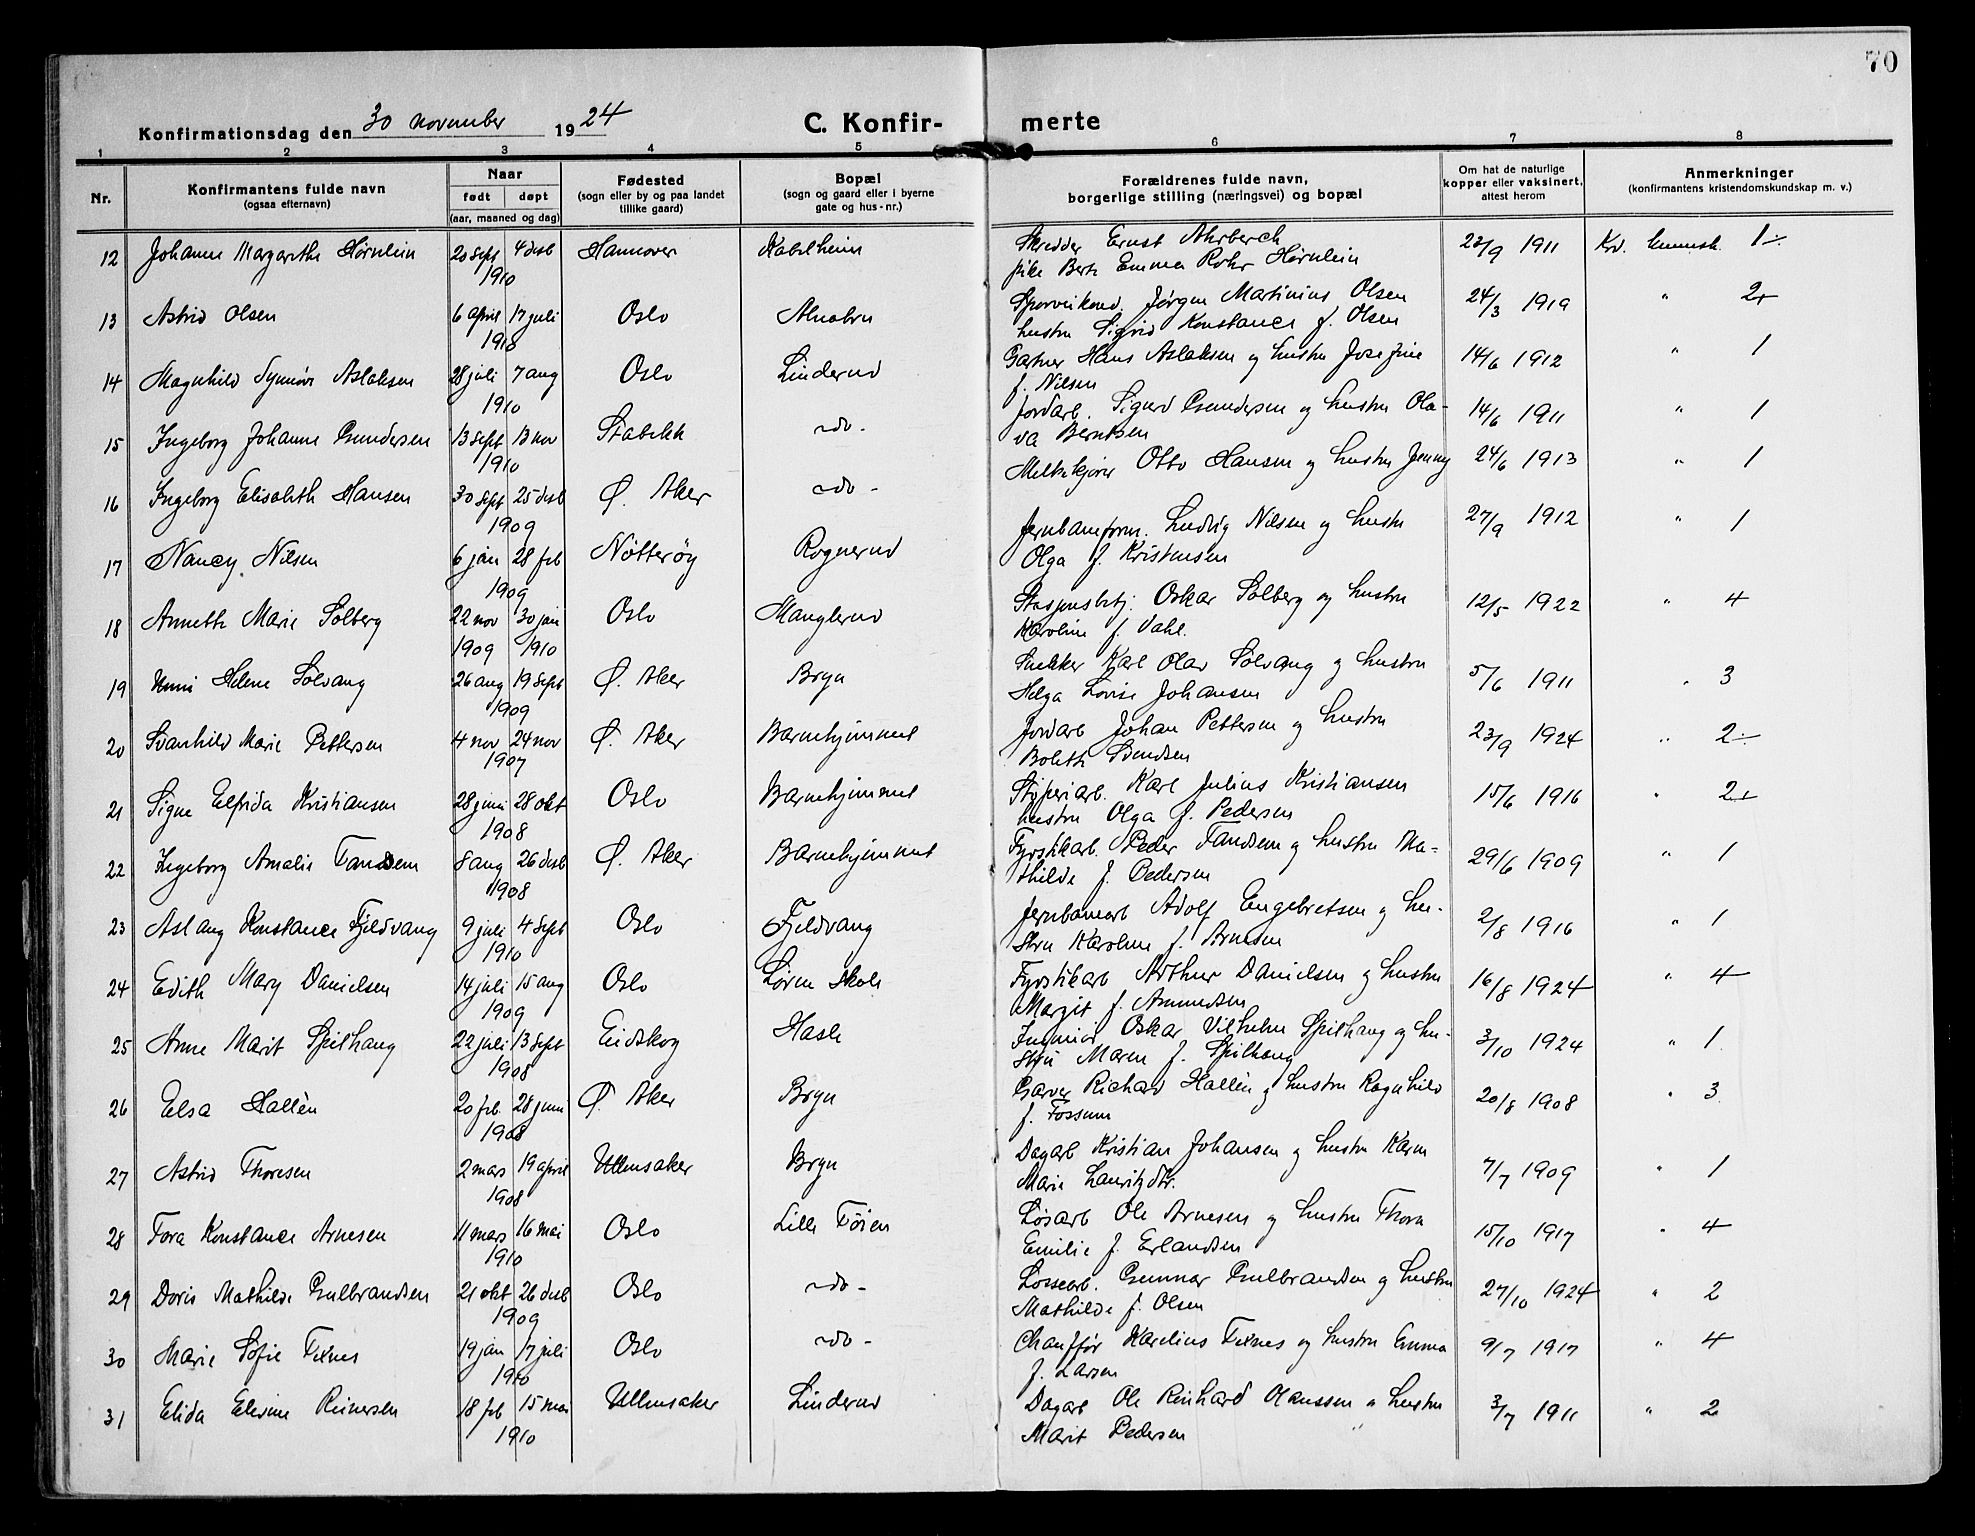 70
Konfirmationsdag den 30 november 1924
C. Konfir- merte
1 2 3 4 5 6 7 8
Nr.
Konfirmantens fulde navn
(ogsaa efternavn)
Naar
født døpt
(aar, maaned og dag)
Fødested
(sogn eller by og paa landet
tillike gaard)
Bopæl
(sogn og gaard eller i byerne
gate og hus-nr.)
Forældrenes fulde navn,
borgerlige stilling (næringsvei) og bopæl
Om hat de naturlige
kopper eller vaksinert,
attest herom
Anmerkninger
(konfirmantens kristendomskundskap m. v.)
12 Johanne Margarethe Hörnlein 20 sept 4 desb 1910 Hannover Kabelheim
Skredder Ernst Ahrberch 23/9 1911 Krd. kunnsk. 1÷
pike Berta Emma Rohr Hörnlein
13 Astrid Olsen 6 april 17 juli 1910 Oslo Alnabru
Sporveikond. Jörgen Martinius Olsen 24/3 1919 " 2+
hustru Sigrid Konstance f. Olsen
14 Magnhild Synnöve Aslaksen 28 juli 7 aug 1910 Oslo Linderud
Gartner Hans Aslaksen og hustru Josefine 14/6 1912 " 1
f. Nilsen
15 Ingeborg Johanne Gundersen 13 sept 13 nov 1910 Stabekk -do-
Jordarb. Sigurd Gundersen og hustru Ola- 14/6 1911 " 1
va Berntsen
16 Ingeborg Elisabeth Hansen 30 sept 25 desb 1909 Ø. Aker -do-
Melkekjörer Otto Hansen og hustru Jenny 24/6 1913 " 1
17 Nancy Nilsen 6 jan 28 feb 1909 Nötteröy Rognerud
Jernbaneform. Ludvig Nilsen og hustru 27/9 1912 " 1
Olga f. Kristensen
18 Annette Marie Solberg 22 nov 1909 30 jan 1910 Oslo Manglerud
Stasjonsbetj. Oskar Solberg og hustru 12/5 1922 " 4
Karoline f. Dahl.
19 Unni Helene Solvang 26 aug 19 sept 1909 Ø. Aker Bryn
Snekker Karl Olav Solvang og hustru 5/6 1911 " 3
Helga Lovise Johansen
20 Svanhild Marie Pettersen 4 nov 24 nov 1907 Ø. Aker Barnehjemmet
Jordarb Johan Pettersen og hustru 23/9 1924 " 2÷
Bolette Svendsen
21 Signe Elfrida Kristiansen 28 juni 28 okt 1908 Oslo Barnehjemmet
Støperiarb. Karl Julius Kristiansen 15/6 1916 " 2+
hustru Olga f. Pedersen
22 Ingeborg Amalie Fandsem 8 aug 26 desb 1908 Ø. Aker Barnehjemmet
Fyrstikarb. Peder Fandsem og hustru Ma- 29/6 1909 " 1
thilde f. Pedersen
23 Aslaug Konstance Fjeldvang 9 juli 4 sept 1910 Oslo Fjeldvang
Jernbanearb Adolf Engebretsen og hu- 2/8 1916 " 1
stru Karoline f. Arnesen
24 Edith Mary Danielsen 14 juli 15 aug 1909 Oslo Lören skole
Fyrstikarb Arthur Danielsen og hustru 16/8 1924 " 4
Margit f. Ammundsen
25 Anne Marit Spilhaug 22 juli 13 sept 1908 Eidskog Hasle
Ingeniör Oskar Vilhelm Spilhaug og hu- 3/10 1924 " 1
stru Maren f. Spilhaug
26 Elsa Hallén 20 feb. 28 juni 1908 Ø. Aker Bryn
Garver Richard Hallén og hustru Ragnhild 20/8 1908 " 3
f. Fossum
27 Astrid Thoresen 2 mars 19 april 1908 Ullensaker Bryn
Dagarb Kristian Johansen og hustru Karen 7/7 1909 " 1
Marie Lauritzdtr.
28 Tora Konstance Arnesen 11 mars 16 mai 1910 Oslo Lille Töien
Løsarb Ole Arnesen og hustru Thora 15/10 1917 " 4
Emilie f. Erlandsen
29 Doris Mathilde Gulbrandsen 21 okt 26 desb 1909 Oslo -do-
Lossearb. Gunnar Gulbrandsen og hustru 27/10 1924 " 2
Mathilde f. Olsen
30 Marie Sofie Fixnes 19 jan 17 juli 1910 Oslo -do-
Chauffør Karelius Fixnes og hustru Emma 9/7 1917 " 4
f. Larsen
31 Elida Elevine Reinersen 18 feb 15 mai 1910 Ullensaker Linderud
Dagarb Ole Reinhard Olaussen og hustru 3/7 1911 " 2
Marit Pedersen